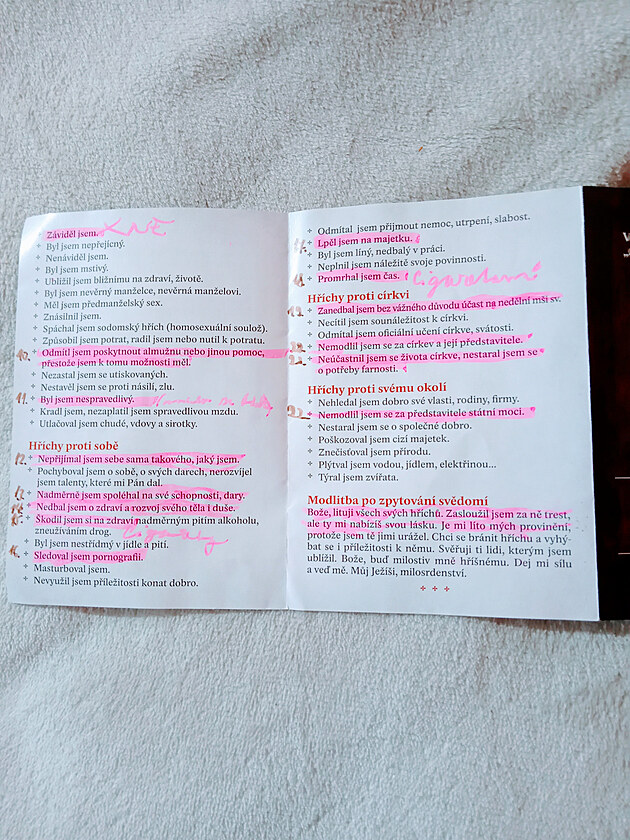 Záviděl jsem.
+ Byl jsem nepřejícný.
+ Nenáviděl jsem.
+ Byl jsem mstivý.
+ Ublížil jsem bližnímu na zdraví, životě.
+ Byl jsem nevěrný manželce, nevěrná manželovi.
+ Měl jsem předmanželský sex.
+ Znásilnil jsem.
+ Spáchal jsem sodomský hřích (homosexuální soulož).
+ Způsobil jsem potrat, radil jsem nebo nutil k potratu.
10. + Odmítl jsem poskytnout almužnu nebo jinou pomoc,
přestože jsem k tomu možnosti měl.
+ Nezastal jsem se utiskovaných.
+ Nestavěl jsem se proti násilí, zlu.
11. + Byl jsem nespravedlivý.
+ Kradl jsem, nezaplatil jsem spravedlivou mzdu.
+ Utlačoval jsem chudé, vdovy a sirotky.
Hříchy proti sobě
12. + Nepřijímal jsem sebe sama takového, jaký jsem.
+ Pochyboval jsem o sobě, o svých darech, nerozvíjel
jsem talenty, které mi Pán dal.
+ Nadměrně jsem spoléhal na své schopnosti, dary.
+ Nedbal jsem o zdraví a rozvoj svého těla i duše.
+ Škodil jsem si na zdraví nadměrným pitím alkoholu,
zneužíváním drog.
+ Byl jsem nestřídmý v jídle a pití.
+ Sledoval jsem pornografii.
+ Masturboval jsem.
+ Nevyužil jsem příležitosti konat dobro.
+ Odmítal jsem přijmout nemoc, utrpení, slabost.
+ Lpěl jsem na majetku.
+ Byl jsem líný, nedbalý v práci.
+ Neplnil jsem náležitě svoje povinnosti.
+ Promrhal jsem čas.
Hříchy proti církvi
+ Zanedbal jsem bez vážného důvodu účast na nedělní mši sv.
+ Necítil jsem sounáležitost k církvi.
+ Odmítal jsem oficiální učení církve, svátosti.
+ Nemodlil jsem se za církev a její představitele.
+ Neúčastnil jsem se života církve, nestaral jsem se
o potřeby farnosti.
Hříchy proti svému okolí
+ Nehledal jsem dobro své vlasti, rodiny, firmy.
+ Nemodlil jsem se za představitele státní moci.
+ Nestaral jsem se o společné dobro.
+ Poškozoval jsem cizí majetek.
+ Znečisťoval jsem přírodu.
+ Plýtval jsem vodou, jídlem, elektřinou...
+ Týral jsem zvířata.
Modlitba po zpytování svědomí
Bože, lituji všech svých hříchů. Zasloužil jsem za ně trest,
ale ty mi nabízíš svou lásku. Je mi líto mých provinění,
protože jsem tě jimi urážel. Chci se bránit hříchu a vyhý-
bat se i příležitosti k němu. Svěřuji ti lidi, kterým jsem
ublížil. Bože, buď milostiv mně hříšnému. Dej mi sílu
a veď mě. Můj Ježíši, milosrdenství.